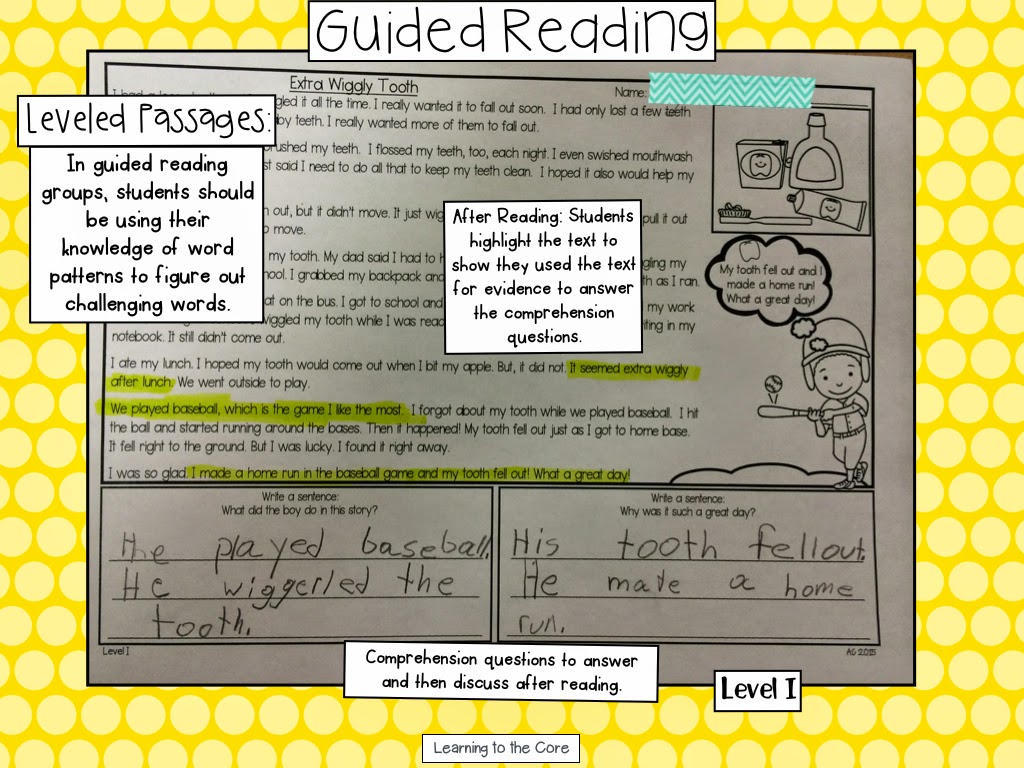 Guided Reading
Extra Wiggly Tooth
Name:
Leveled Passages:
In guided reading
groups, students should
be using their
knowledge of word
patterns to figure out
challenging words.
gled it all the time. I really wanted it to fall out soon. I had only lost a few teeth
by teeth. I really wanted more of them to fall out.
rushed my teeth. I flossed my teeth, too, each night. I even swished mouthwash
st said I need to do all that to keep my teeth clean. I hoped it also would help my
out, but it didn't move. It just wig
pull it out
move.
After Reading: Students
highlight the text to
show they used the text
for evidence to answer
the comprehension
questions.
my tooth. My dad said I had to
ging my
ool. I grabbed my backpack and
th as I ran.
at on the bus. I got to school and
my work
wiggled my tooth while I was read
iting in my
notebook. It still didn't come out.
My tooth fell out and I
made a home run!
What a great day!
I ate my lunch. I hoped my tooth would come out when I bit my apple. But, it did not. It seemed extra wiggly
after lunch. We went outside to play.
We played baseball, which is the game I like the most. I forgot about my tooth while we played baseball. I hit
the ball and started running around the bases. Then it happened! My tooth fell out just as I got to home base.
It fell right to the ground. But I was lucky. I found it right away.
I was so glad. I made a home run in the baseball game and my tooth fell out! What a great day!
Write a sentence:
What did the boy do in this story?
He played baseball.
He wiggerled the
tooth.
Write a sentence:
Why was it such a great day?
His tooth fellout.
He made a home
run.
Level I
AG 2015
Comprehension questions to answer
and then discuss after reading.
Level I
Learning to the Core